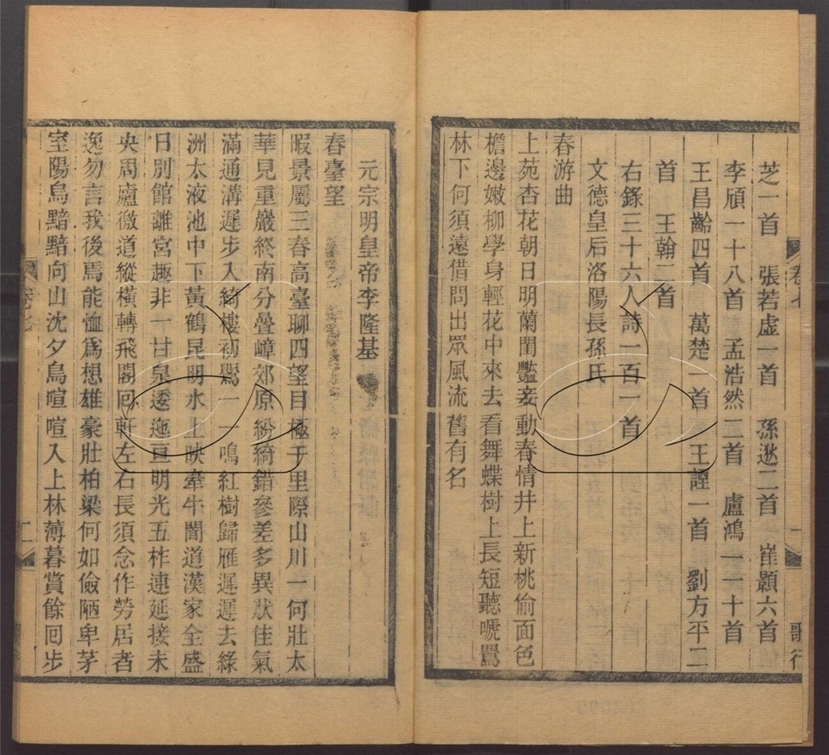 卷七
一
歌行
芝一首　張若虛一首　孫逖二首　崔顥六首
李頎一十八首　孟浩然二首　盧鴻一一十首
王昌齡四首　萬楚一首　王諲一首　劉方平二
首　王翰二首
右錄三十六人詩一百一首
文德皇后洛陽長孫氏
春游曲
上苑杏花朝日明蘭閨豔妾動春情井上新桃偷面色
檐邊嫩柳學身輕花中來去看舞蝶樹上長短聽啼鶯
林下何須遠借問出眾風流舊有名
元宗明皇帝李隆基
春臺望
暇景屬三春高臺聊四望目極千里際山川一何壯太
華見重巖終南分疊嶂郊原紛綺錯參差多異狀佳氣
滿通溝遲步入綺樓初鶯一一鳴紅樹歸雁遲遲去綠
洲太液池中下黃鶴昆明水上映牽牛聞道漢家全盛
日別館離宮趣非一甘泉逶迤亘明光五柞連延接未
央周廬徼道縱橫轉飛閣回軒左右長須念作勞居者
逸勿言我後焉能恤為想雄豪壯柏梁何如儉陋卑茅
室陽烏黯黯向山沈夕鳥喧喧入上林薄暮賞餘回步
卷七
二